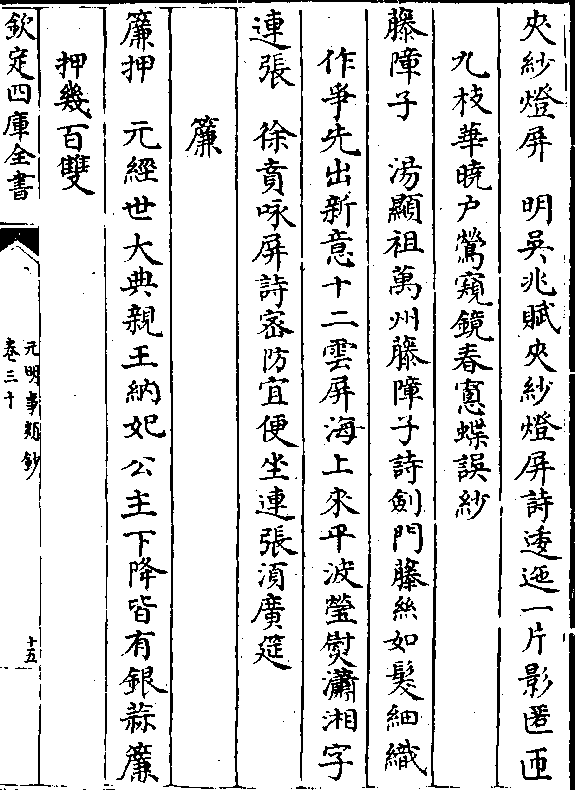 夾紗燈屏　明吳兆賦夾紗燈屏詩逶迤一片影匿匝
九枝華曉户鶯窺鏡春窻蝶誤紗
藤障子　湯顯祖萬州藤障子詩劍門藤絲如髮細織
作爭先出新意十二雲屏海上來平波瑩熨瀟湘字
連張　徐賁咏屏詩密防宜便坐連張湏廣筵
簾
簾押　元經世大典親王納妃公主下降皆有銀蒜簾
押幾百雙
欽定四庫全書
元明事類鈔
卷三十
十五